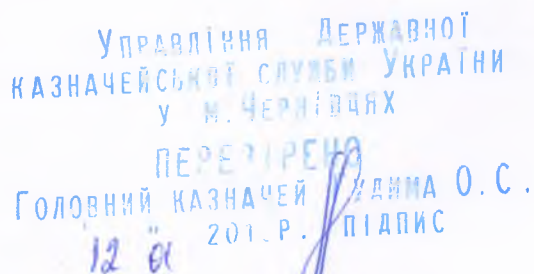 УПРАВЛІННЯ ДЕРЖАВНОЇ
КАЗНАЧЕЙСЬКОЇ СЛУЖБИ УКРАЇНИ
У М. ЧЕРНІВЦЯХ
ПЕРЕВІРЕНО
ГОЛОВНИЙ КАЗНАЧЕЙ О.С.
201 Р. ПІДПИС
12 01